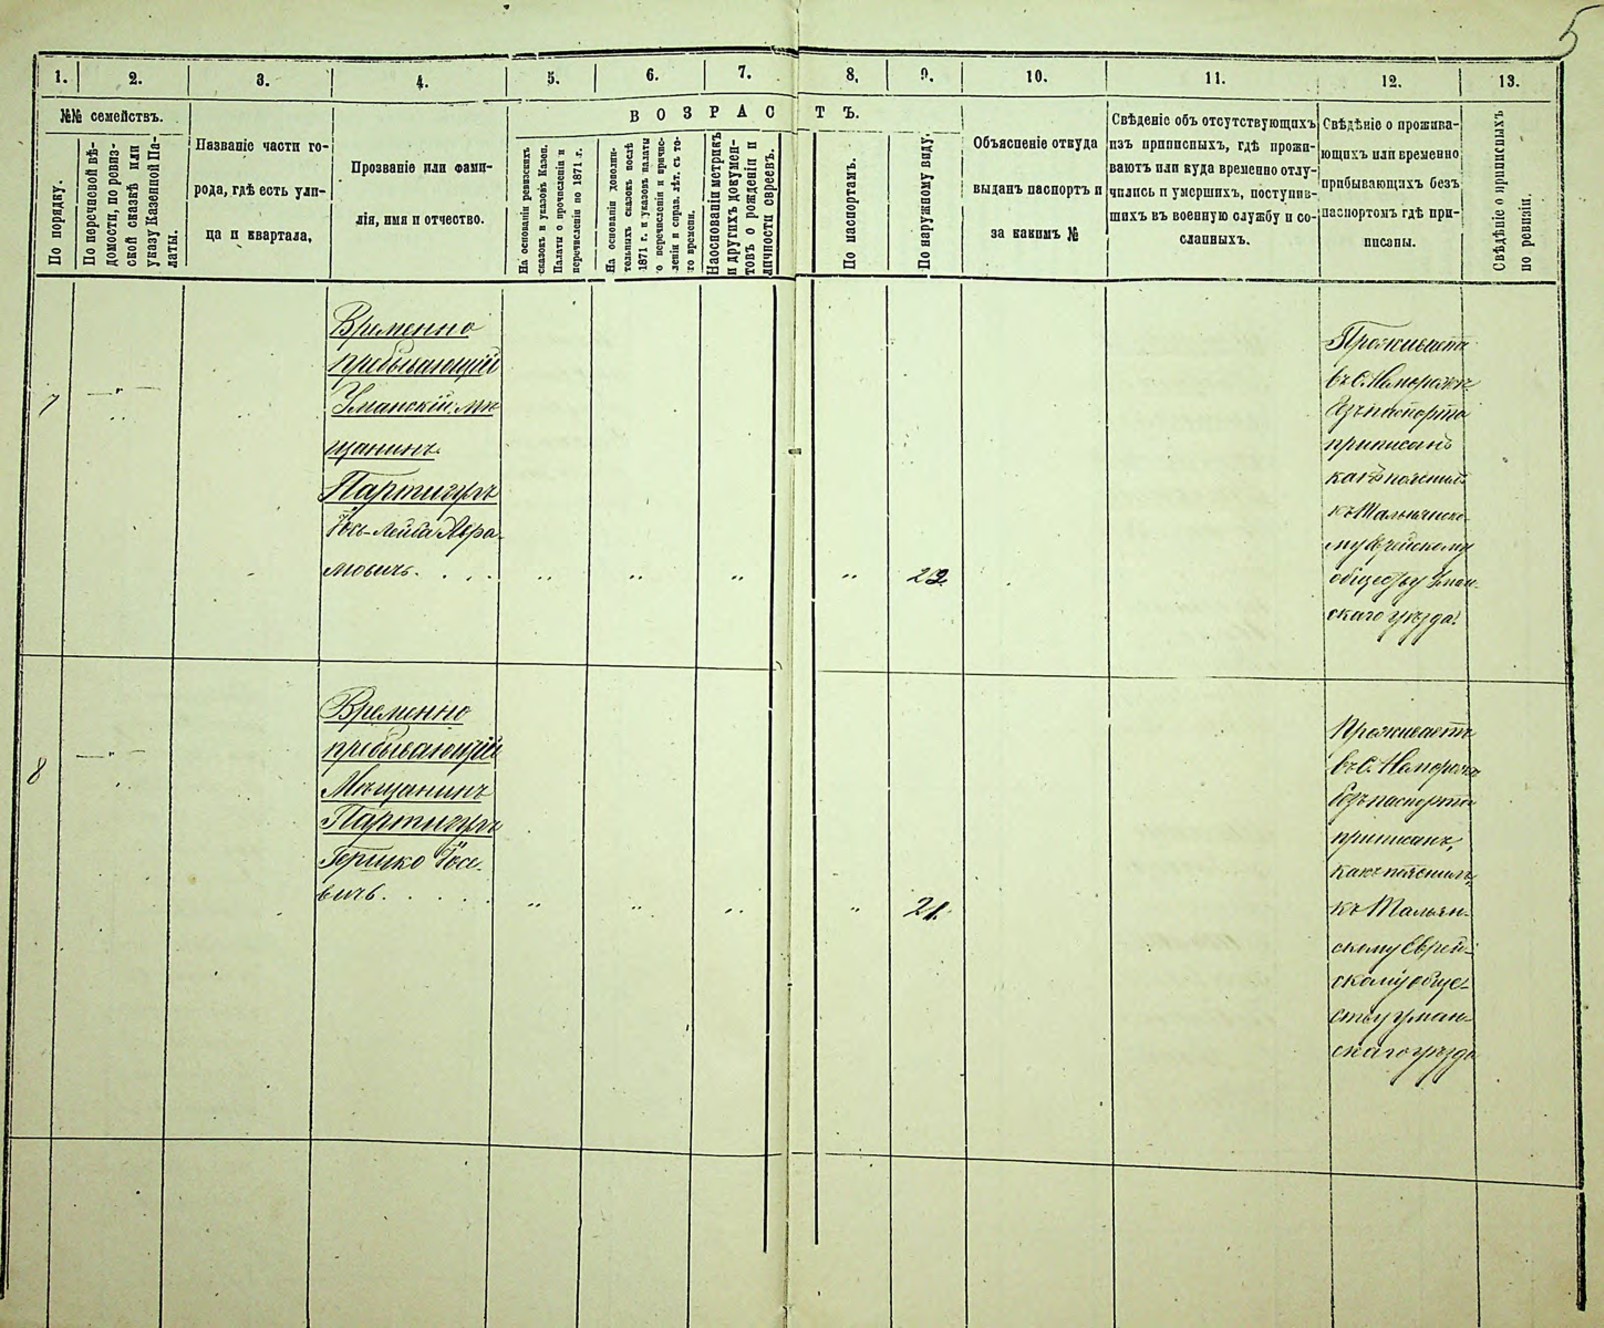 5
1. 2. 3. 4. 5. 6. 7. 8. 9. 10. 11. 12. 13.
№№ семействъ.
По порядку.
По перечневой вѣ-
домости, по ревиз-
ской сказкѣ или
указу Казенной Па-
латы.
Названіе части го-
рода, гдѣ есть ули-
ца и квартала,
Прозваніе или фами-
лія, имя и отчество.
ВОЗРАСТЪ.
На основаніи ревизскихъ
сказокъ и указовъ Казен.
Палаты о причисленіи и
перечисленіи по 1871 г.
На основаніи дополни-
тельныхъ сказокъ послѣ
1871 г. и указовъ палаты
о перечисленіи и причис-
леніи и справ. лѣт. съ то-
го времени.
На основаніи метрикъ
и другихъ докумен-
товъ о рожденіи и
личности евреевъ.
По паспортамъ.
По наружному виду.
Объясненіе откуда
выданъ паспортъ и
за какимъ №
Свѣденіе объ отсутствующихъ
изъ приписныхъ, гдѣ прожи-
ваютъ или куда временно отлу-
чились и умершихъ, поступив-
шихъ въ военную службу и со-
сланныхъ.
Свѣдѣніе о прожива-
ющихъ или временно
прибывающихъ безъ
паспортомъ гдѣ при-
писаны.
Свѣдѣніе о приписныхъ
по ревизіи.
7
Временно
пребывающій
Уманскій мѣ
щанинъ
Партигулъ
Іось-Лейба Авра-
мовичъ. . . .
" " " " 22.
Проживаетъ
въ с.
безъ паспорта
приписанъ
какъ пояснилъ
къ Тальянско-
му Еврейскому
обществу Уман-
скаго уѣзда.
8
Временно
пребывающій
Мѣщанинъ
Партигулъ
Гершко Іосе-
вичъ. . . . .
" " " " 21.
Проживаетъ
въ с.
безъ паспорта
приписанъ,
какъ пояснилъ,
къ Тальян-
скому Еврей-
скому обще-
ству Уман-
скаго уѣзда